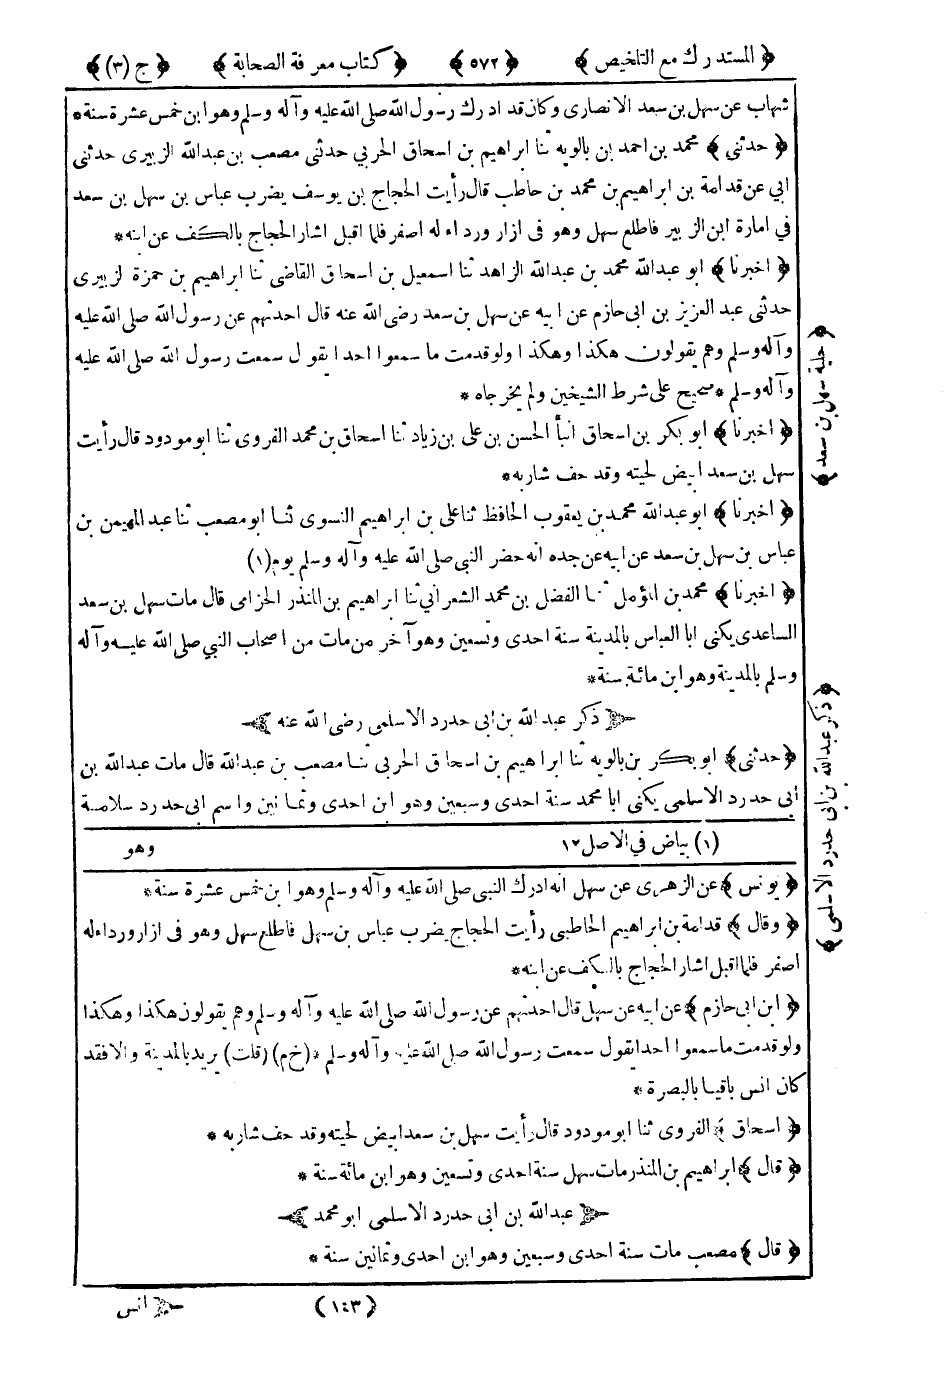 ﴿ المستدرك مع التلخيص ﴾ ﴿ ٥٧٢ ﴾ ﴿ كتاب معرفة الصحابة ﴾ ﴿ ج (٣) ﴾
شهاب عن سهل بن سعد الانصارى وكان قد ادرك رسول الله صلى الله عليه وآله وسلم وهو ابن خمس عشرة سنة *
﴿ حدثنى ﴾ محمد بن احمد بن بالويه ثنا ابراهيم بن اسحاق الحربي حدثنى مصعب بن عبدالله الزبيرى حدثنى
ابي عن قدامة بن ابراهيم بن محمد بن حاطب قال رأيت الحجاج بن يوسف يضرب عباس بن سهل بن سعد
في امارة ابن الزبير فاطلع سهل وهو فى ازار ورداء له اصفر فلما اقبل اشار الحجاج بالكف عن ابنه *
﴿ اخبرنا ﴾ ابو عبدالله محمد بن عبدالله الزاهد ثنا اسمعيل بن اسحاق القاضى ثنا ابراهيم بن حمزة لزبيرى
حدثنى عبد العزيز بن ابى حازم عن ابيه عن سهل بن سعد رضى الله عنه قال احدثهم عن رسول الله صلى الله عليه
وآله وسلم وهم يقولون هكذا وهكذا ولو قدمت ما سمعوا احدا يقول سمعت رسول الله صلى الله عليه
وآله وسلم * صحيح على شرط الشيخين ولم يخرجاه *
﴿ اخبرنا ﴾ ابو بكر بن اسحاق انبأ الحسن بن على بن زياد ثنا اسحاق بن محمد الفروى ثنا ابو مودود قال رأيت
سهل بن سعد ابيض لحيته وقد حف شاربه *
﴿ اخبرنا ﴾ ابو عبدالله محمد بن يعقوب الحافظ ثنا على بن ابراهيم النسوى ثنا ابو مصعب ثنا عبد المهيمن بن
عباس بن سهل بن سعد عن ابيه عن جده انه حضر النبي صلى الله عليه وآله وسلم يوم (١)
﴿ اخبرنا ﴾ محمد بن المؤمل ثنا الفضل بن محمد الشعراني ثنا ابراهيم بن المنذر الحزامى قال مات سهل بن سعد
الساعدى يكنى ابا العباس بالمدينة سنة احدى وتسعين وهو آخر من مات من اصحاب النبي صلى الله عليه وآله
وسلم بالمدينة وهو ابن مائة سنة *
ذكر عبد الله بن ابى حدرد الاسلمى رضى الله عنه
﴿ حدثنى ﴾ ابو بكر بن بالويه ثنا ابراهيم بن اسحاق الحربي ثنا مصعب بن عبدالله قال مات عبدالله بن
ابى حدرد الاسلمى يكنى ابا محمد سنة احدى وسبعين وهو ابن احدى وثمانين واسم ابى حدرد سلامة
(١) بياض في الاصل ١٢ وهو
﴿ يونس ﴾ عن الزهرى عن سهل انه ادرك النبى صلى الله عليه وآله وسلم وهو ابن خمس عشرة سنة *
﴿ وقال ﴾ قدامة بن ابراهيم الحاطبى رأيت الحجاج يضرب عباس بن سهل فاطلع سهل وهو فى ازار ورداء له
اصفر فلما اقبل اشار الحجاج بالكف عن ابنه *
﴿ ابن ابى حازم ﴾ عن ابيه عن سهل قال احدثهم عن رسول الله صلى الله عليه وآله وسلم وهم يقولون هكذا وهكذا
ولو قدمت ما سمعوا احدا يقول سمعت رسول الله صلى الله عليه وآله وسلم * (خ م) (قلت) يريد بالمدينة والا فقد
كان انس باقيا بالبصرة *
﴿ اسحاق ﴾ الفروى ثنا ابو مودود قال رأيت سهل بن سعد ابيض لحيته وقد حف شاربه *
﴿ قال ﴾ ابراهيم بن المنذر مات سهل سنة احدى وتسعين وهو ابن مائة سنة *
عبدالله بن ابى حدرد الاسلمى ابو محمد
﴿ قال ﴾ مصعب مات سنة احدى وسبعين وهو ابن احدى وثمانين سنة *
(١٤٣) انس
﴿ حلية سهل بن سعد ﴾
﴿ ذكر عبدالله بن ابى حدرد الاسلمى ﴾